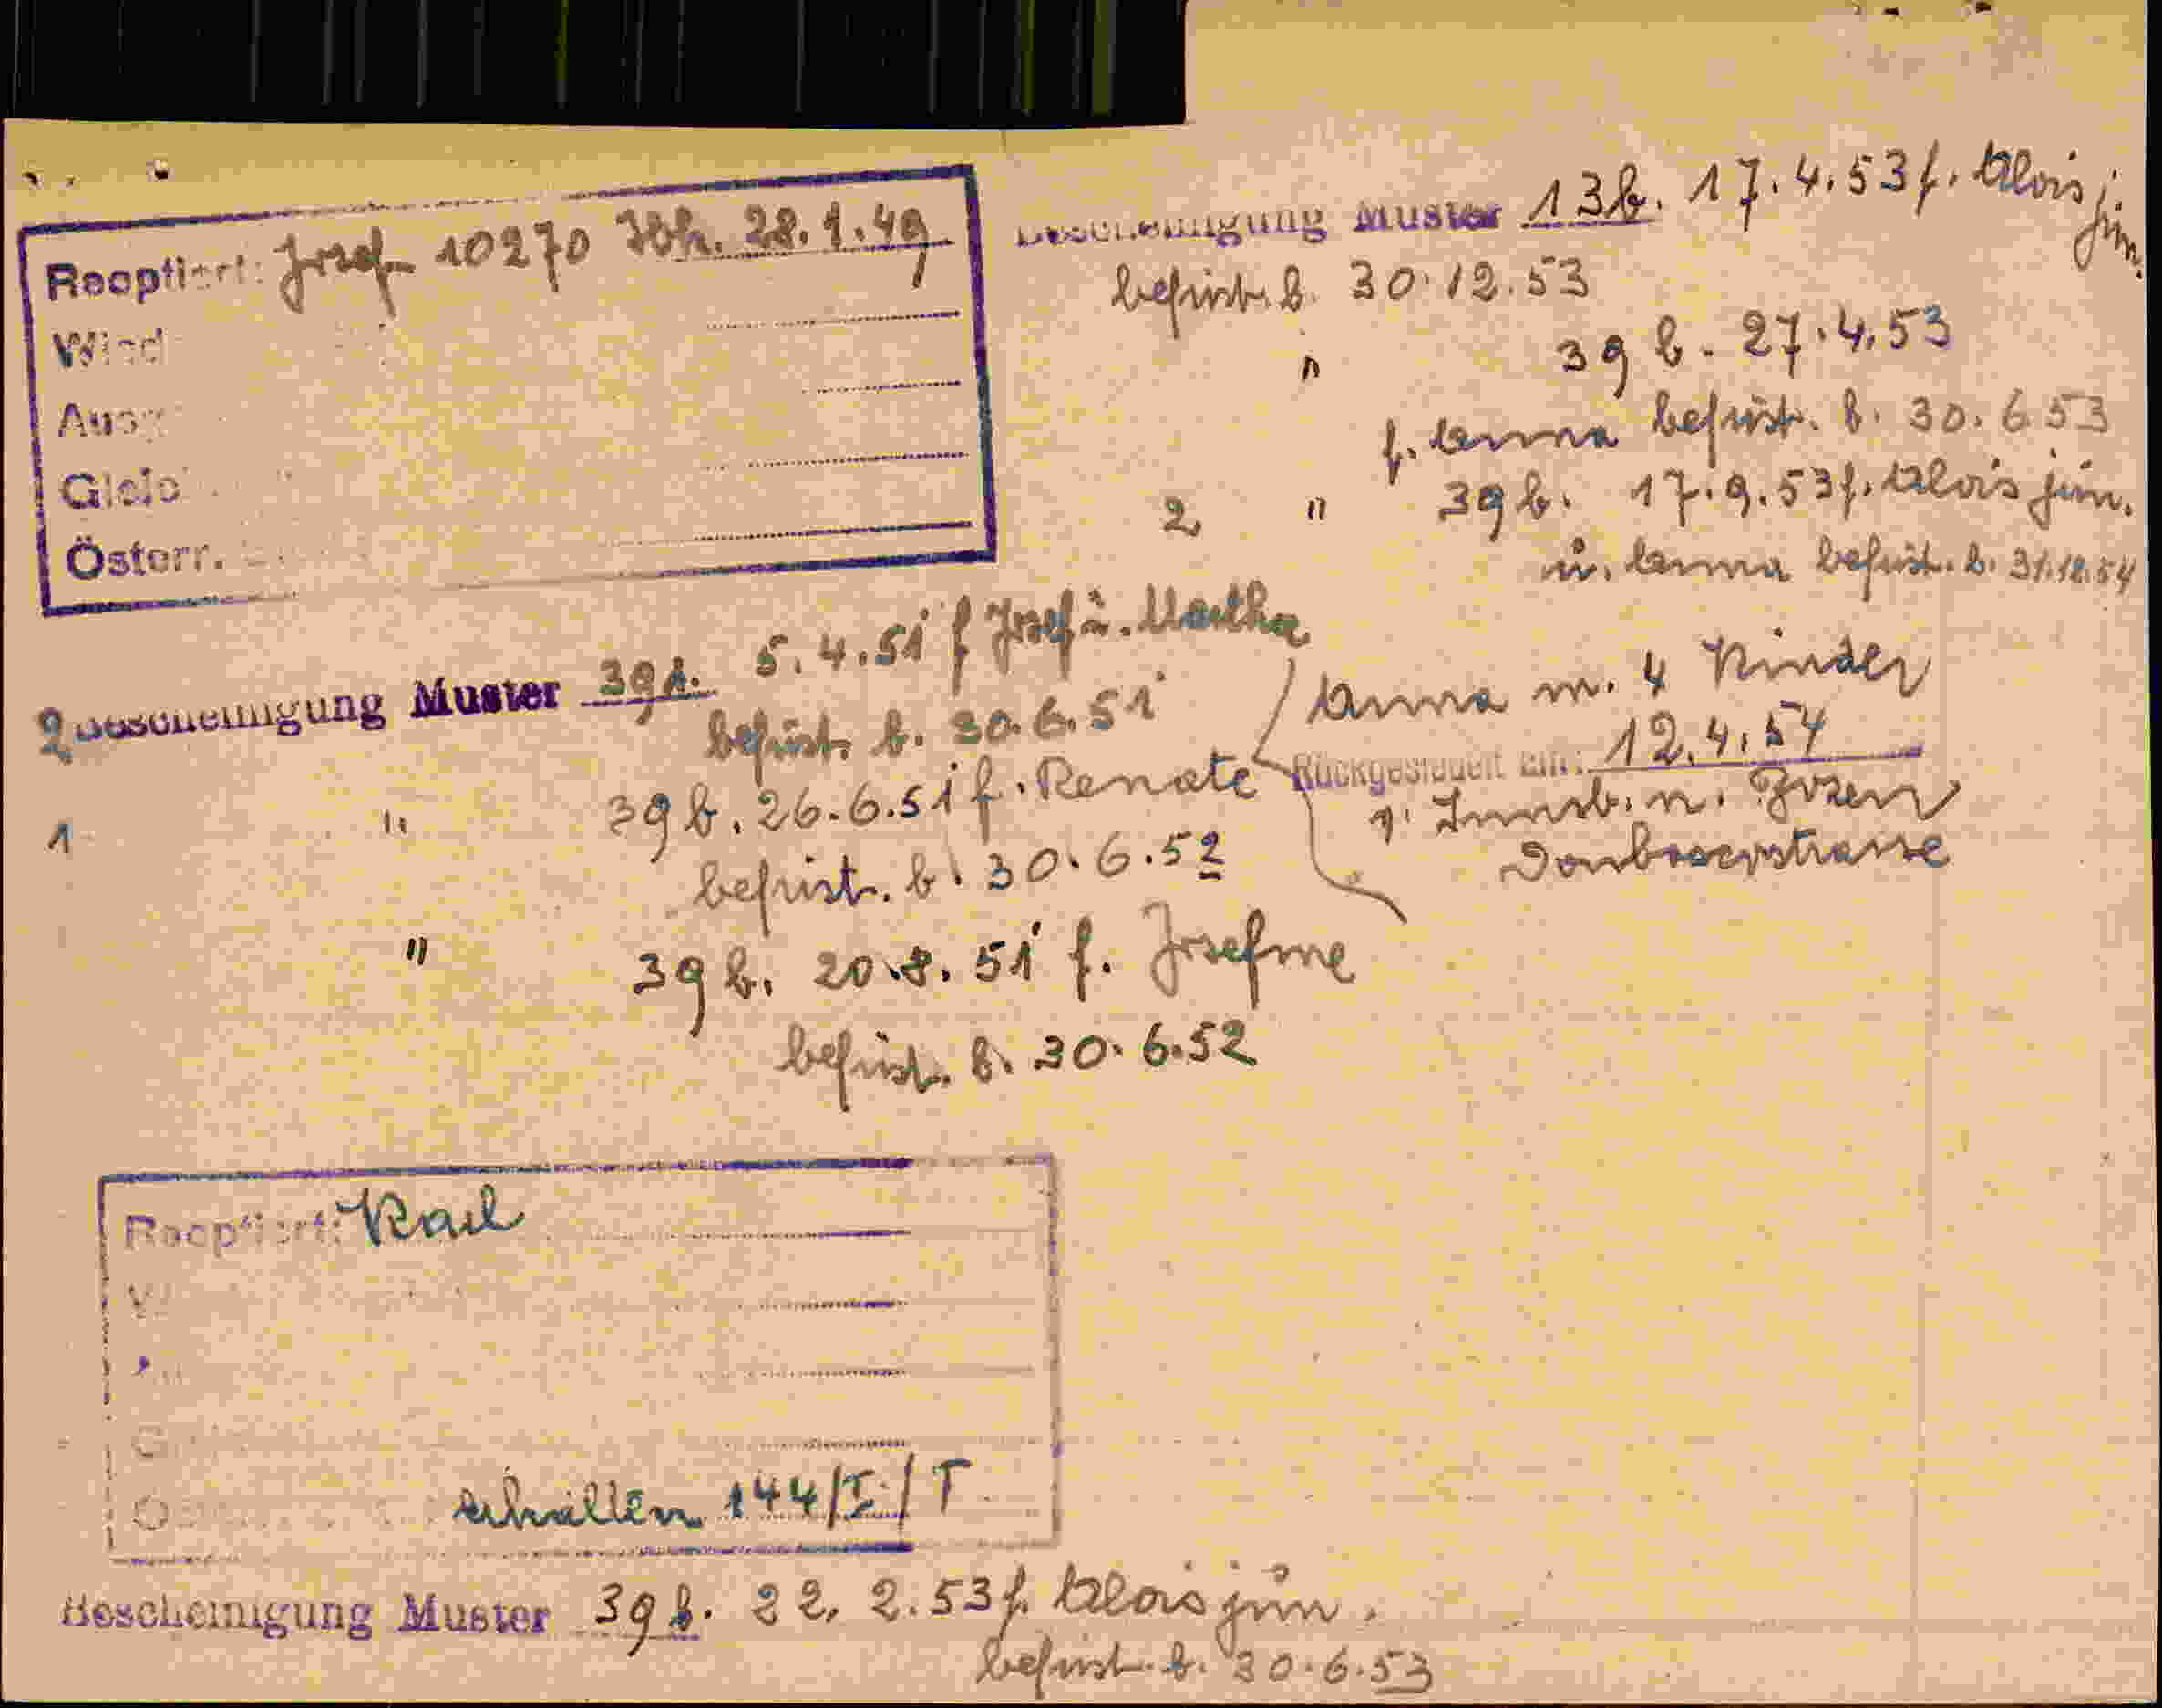 Reoptiert: Josef 10270 Ibk. 28.1.49
Wied
Ausg
Gleic
Österr.
2 Bescheinigung Muster 39b. 5.4.51 f Josef ü. Martha
befrist. b. 30.6.51
1 " 39b. 26.6.51 f. Renate
befrist. b. 30.6.52
" 39b. 20.8.51 f. Josefine
befrist. b. 30.6.52
Reoptiert: Karl
erhalten 144/I/T
Bescheinigung Muster 39b. 22.2.53 f. Alois jün.
befrist. b. 30.6.53
Bescheinigung Muster 13b. 17.4.53 f. Alois jün.
befrist. b. 30.12.53
" 39 b. 27.4.53
f. Anna befrist. b. 30.6.53
2 " 39b. 17.9.53 f. Alois jün.
ü. Anna befrist. b. 31.12.54
Anna m. 4 Kinder
Rückgesiedelt am: 12.4.54
v. Innsb. n. Bozen
Donboscostrasse